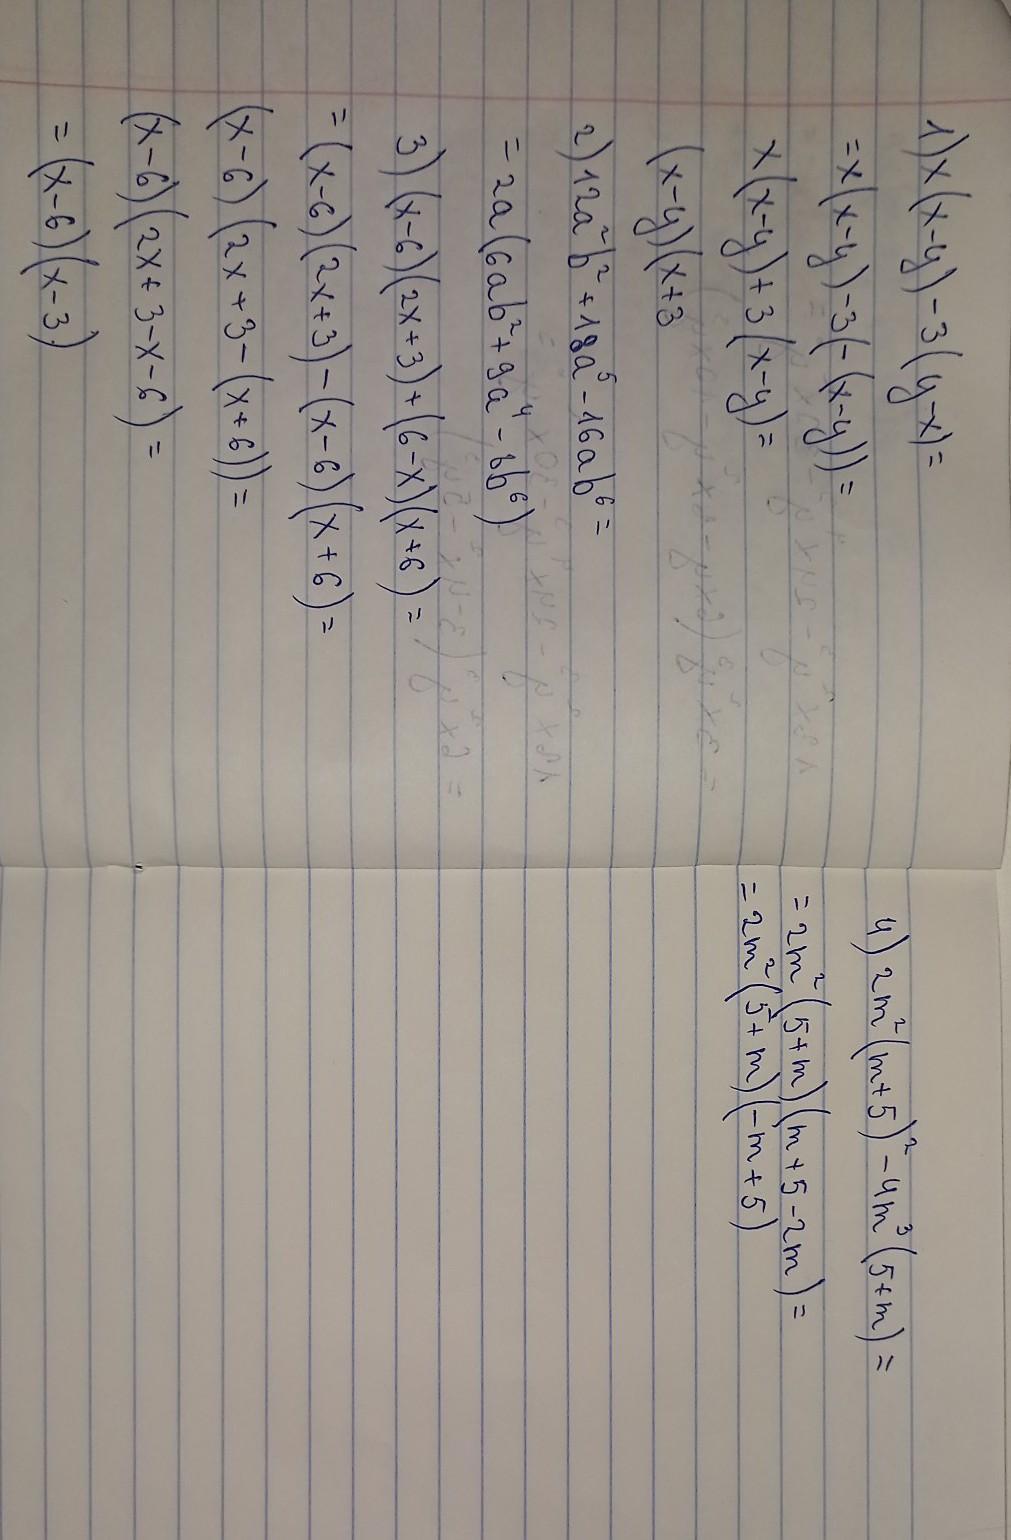 1) x(x-y)-3(y-x)=
=x(x-y)-3(-(x-y))=
x(x-y)+3(x-y)=
(x-y)(x+3
2) 12a²b²+18a⁵-16ab⁶=
=2a(6ab²+9a⁴-8b⁶)
3) (x-6)(2x+3)+(6-x)(x+6)=
=(x-6)(2x+3)-(x-6)(x+6)=
(x-6)(2x+3-(x+6))=
(x-6)(2x+3-x-6)=
=(x-6)(x-3)
4) 2m²(m+5)²-4m³(5+m)=
=2m²(5+m)(m+5-2m)=
=2m²(5+m)(-m+5)